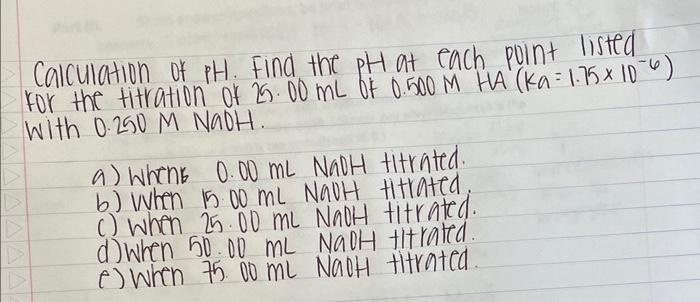 Calculation of pH. Find the pH at each point listed
for the titration of 25.00 mL of 0.500 M HA (Ka = 1.75 x 10^-6)
with 0.250 M NaOH.
a) When 0.00 mL NaOH titrated.
b) when 15.00 mL NaOH titrated.
c) when 25.00 mL NaOH titrated.
d) when 50.00 mL NaOH titrated.
e) when 75.00 mL NaOH titrated.